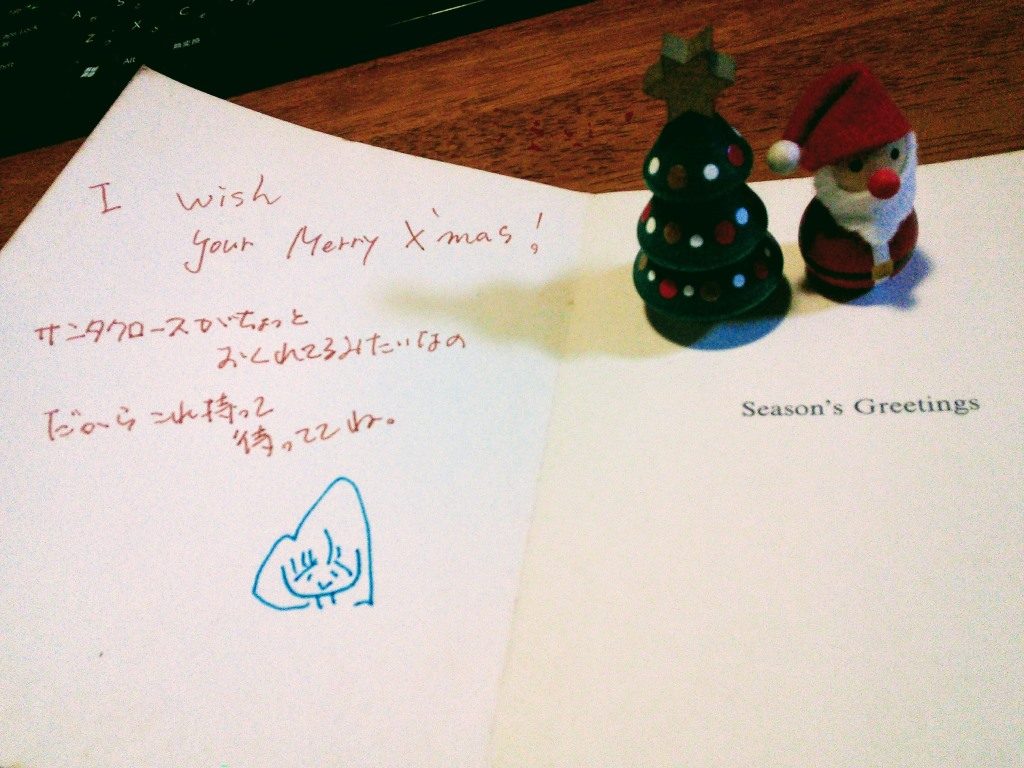 A
Z
X
C
Alt
無変換
I wish
your Merry X'mas!
サンタクロースがちょっと
おくれてるみたいなの
だから これ持って
待っててね。
Season's Greetings